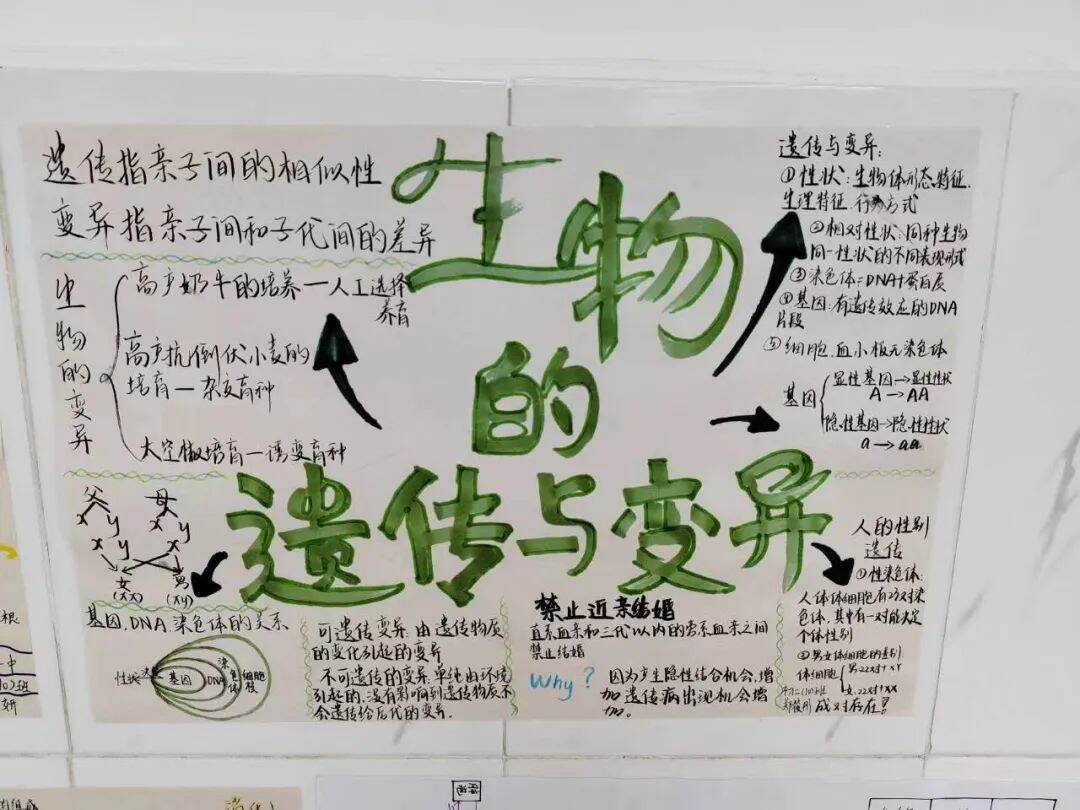 遗传指亲子间的相似性
变异指亲子间和子代间的差异
生物的变异
高产奶牛的培养一人工选择
养育
高产抗倒伏小麦的
培育一杂交育种
太空椒培育一诱变育种
生物
的
遗传与变异
遗传与变异:
①性状:生物体形态特征.
生理特征.行为方式
②相对性状:同种生物
同一性状的不同表现形式
③染色体=DNA+蛋白质
④基因:有遗传效应的DNA
片段
⑤细胞.血小板无染色体
基因
显性基因→显性性状
A→AA
隐性基因→隐性性状
a→aa
父 母
x y x y
x y x
女 男
(xx) (xy)
基因.DNA.染色体的关系
性状
决定
基因
DNA
染色体
细胞核
可遗传变异:由遗传物质
的变化引起的变异
不可遗传的变异:单纯由环境
引起的,没有影响到遗传物质不
会遗传给后代的变异.
禁止近亲结婚
直系血亲和三代以内的旁系血亲之间
禁止结婚
Why?
因为产生隐性结合机会增
加遗传病出现机会增
加。
人的性别
遗传
①性染色体:
人体体细胞有23对染
色体,其中有一对能决定
个体性别
②男女体细胞的差别
体细胞
男:22对+XY
女:22对+XX
成对存在!
根
中
班
妍